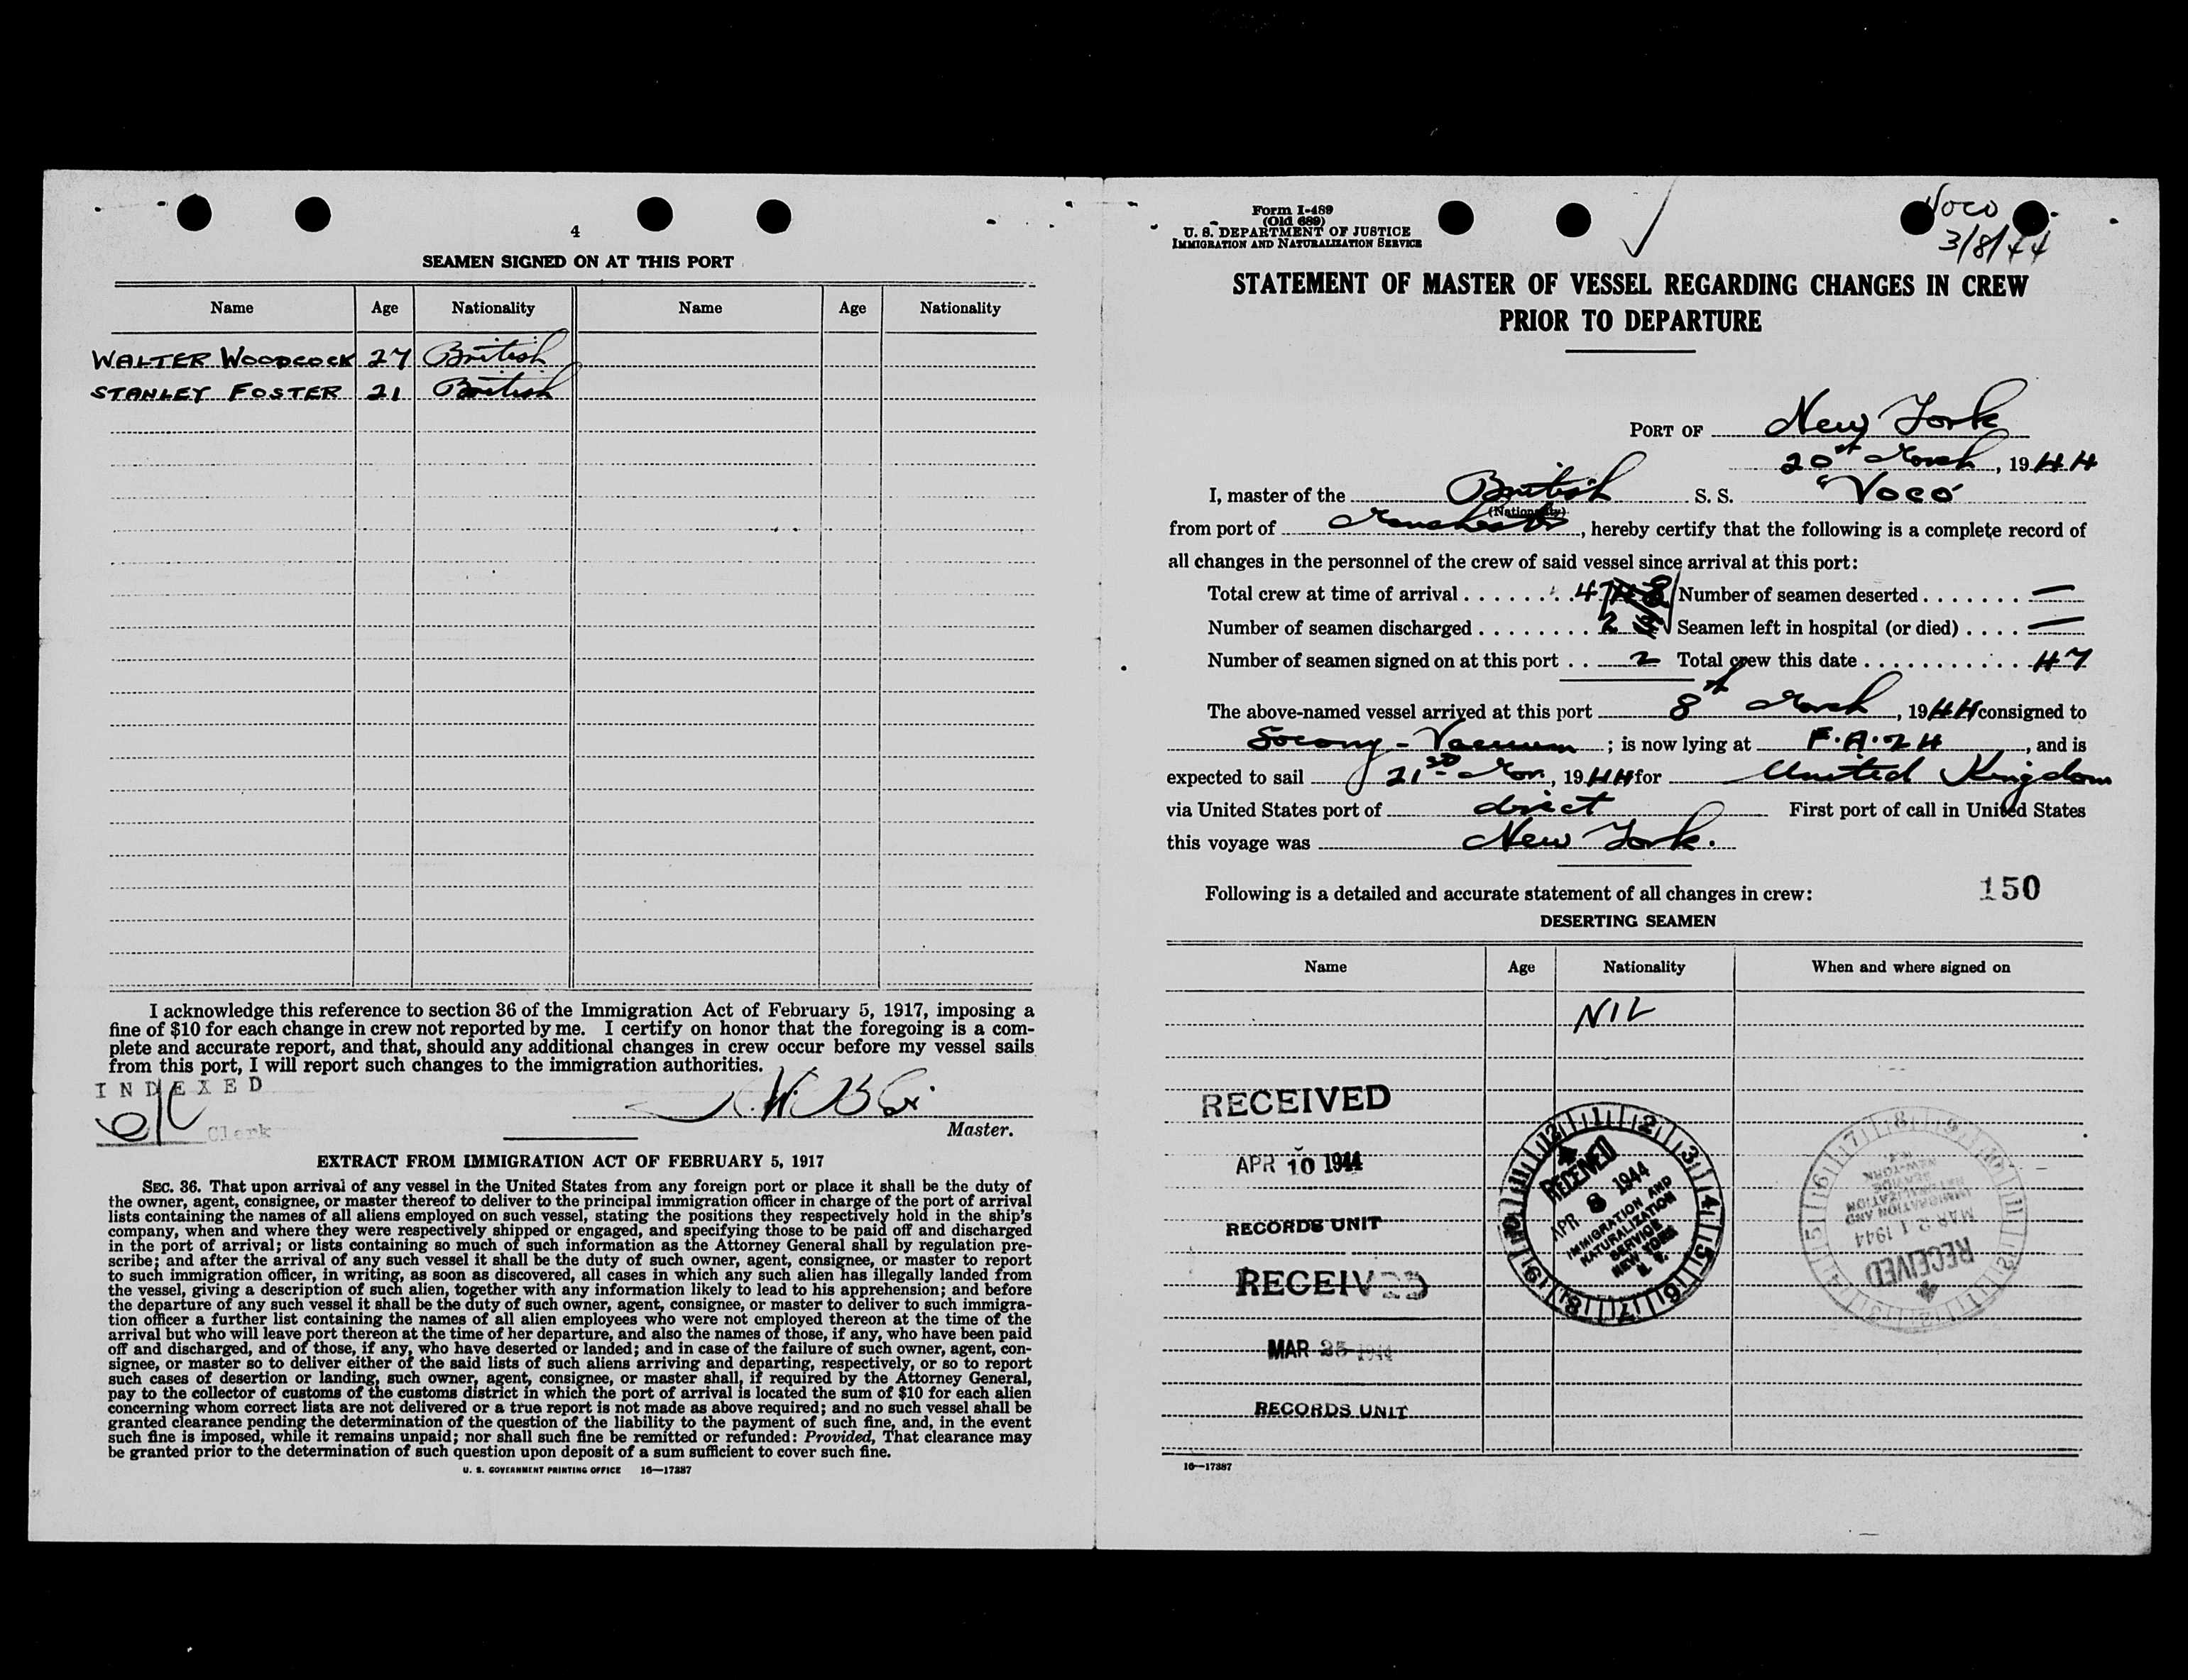 4
SEAMEN SIGNED ON AT THIS PORT
Name Age Nationality Name Age Nationality
WALTER WOODCOCK 27 British
STANLEY FOSTER 21 British
I acknowledge this reference to section 36 of the Immigration Act of February 5, 1917, imposing a
fine of $10 for each change in crew not reported by me. I certify on honor that the foregoing is a com-
plete and accurate report, and that, should any additional changes in crew occur before my vessel sails
from this port, I will report such changes to the immigration authorities.
INDEXED
Clerk
Master.
EXTRACT FROM IMMIGRATION ACT OF FEBRUARY 5, 1917
SEC. 36. That upon arrival of any vessel in the United States from any foreign port or place it shall be the duty of
the owner, agent, consignee, or master thereof to deliver to the principal immigration officer in charge of the port of arrival
lists containing the names of all aliens employed on such vessel, stating the positions they respectively hold in the ship's
company, when and where they were respectively shipped or engaged, and specifying those to be paid off and discharged
in the port of arrival; or lists containing so much of such information as the Attorney General shall by regulation pre-
scribe; and after the arrival of any such vessel it shall be the duty of such owner, agent, consignee, or master to report
to such immigration officer, in writing, as soon as discovered, all cases in which any such alien has illegally landed from
the vessel, giving a description of such alien, together with any information likely to lead to his apprehension; and before
the departure of any such vessel it shall be the duty of such owner, agent, consignee, or master to deliver to such immigra-
tion officer a further list containing the names of all alien employees who were not employed thereon at the time of the
arrival but who will leave port thereon at the time of her departure, and also the names of those, if any, who have been paid
off and discharged, and of those, if any, who have deserted or landed; and in case of the failure of such owner, agent, con-
signee, or master so to deliver either of the said lists of such aliens arriving and departing, respectively, or so to report
such cases of desertion or landing, such owner, agent, consignee, or master shall, if required by the Attorney General,
pay to the collector of customs of the customs district in which the port of arrival is located the sum of $10 for each alien
concerning whom correct lists are not delivered or a true report is not made as above required; and no such vessel shall be
granted clearance pending the determination of the question of the liability to the payment of such fine, and, in the event
such fine is imposed, while it remains unpaid; nor shall such fine be remitted or refunded: Provided, That clearance may
be granted prior to the determination of such question upon deposit of a sum sufficient to cover such fine.
U. S. GOVERNMENT PRINTING OFFICE 16—17387
Form I-489
(Old 689)
U. S. DEPARTMENT OF JUSTICE
IMMIGRATION AND NATURALIZATION SERVICE
Voco
3/8/44
STATEMENT OF MASTER OF VESSEL REGARDING CHANGES IN CREW
PRIOR TO DEPARTURE
PORT OF New York
20st March, 1944
I, master of the British S. S. "Voco"
(Nationality)
from port of Manchester, hereby certify that the following is a complete record of
all changes in the personnel of the crew of said vessel since arrival at this port:
Total crew at time of arrival 47 Number of seamen deserted —
Number of seamen discharged 2 Seamen left in hospital (or died) —
Number of seamen signed on at this port 2 Total crew this date 47
The above-named vessel arrived at this port 8th March, 1944 consigned to
Socony-Vacuum; is now lying at F.A.24, and is
expected to sail 21st Mar., 1944 for United Kingdom
via United States port of direct First port of call in United States
this voyage was New York.
Following is a detailed and accurate statement of all changes in crew: 150
DESERTING SEAMEN
Name Age Nationality When and where signed on
NIL
RECEIVED
APR 10 1944
RECORDS UNIT
RECEIVED
MAR 25 1944
RECORDS UNIT
RECEIVED
APR 8 1944
IMMIGRATION AND
NATURALIZATION
SERVICE
NEW YORK
N. Y.
RECEIVED
MAR 21 1944
IMMIGRATION AND
NATURALIZATION
SERVICE
NEW YORK
16—17387